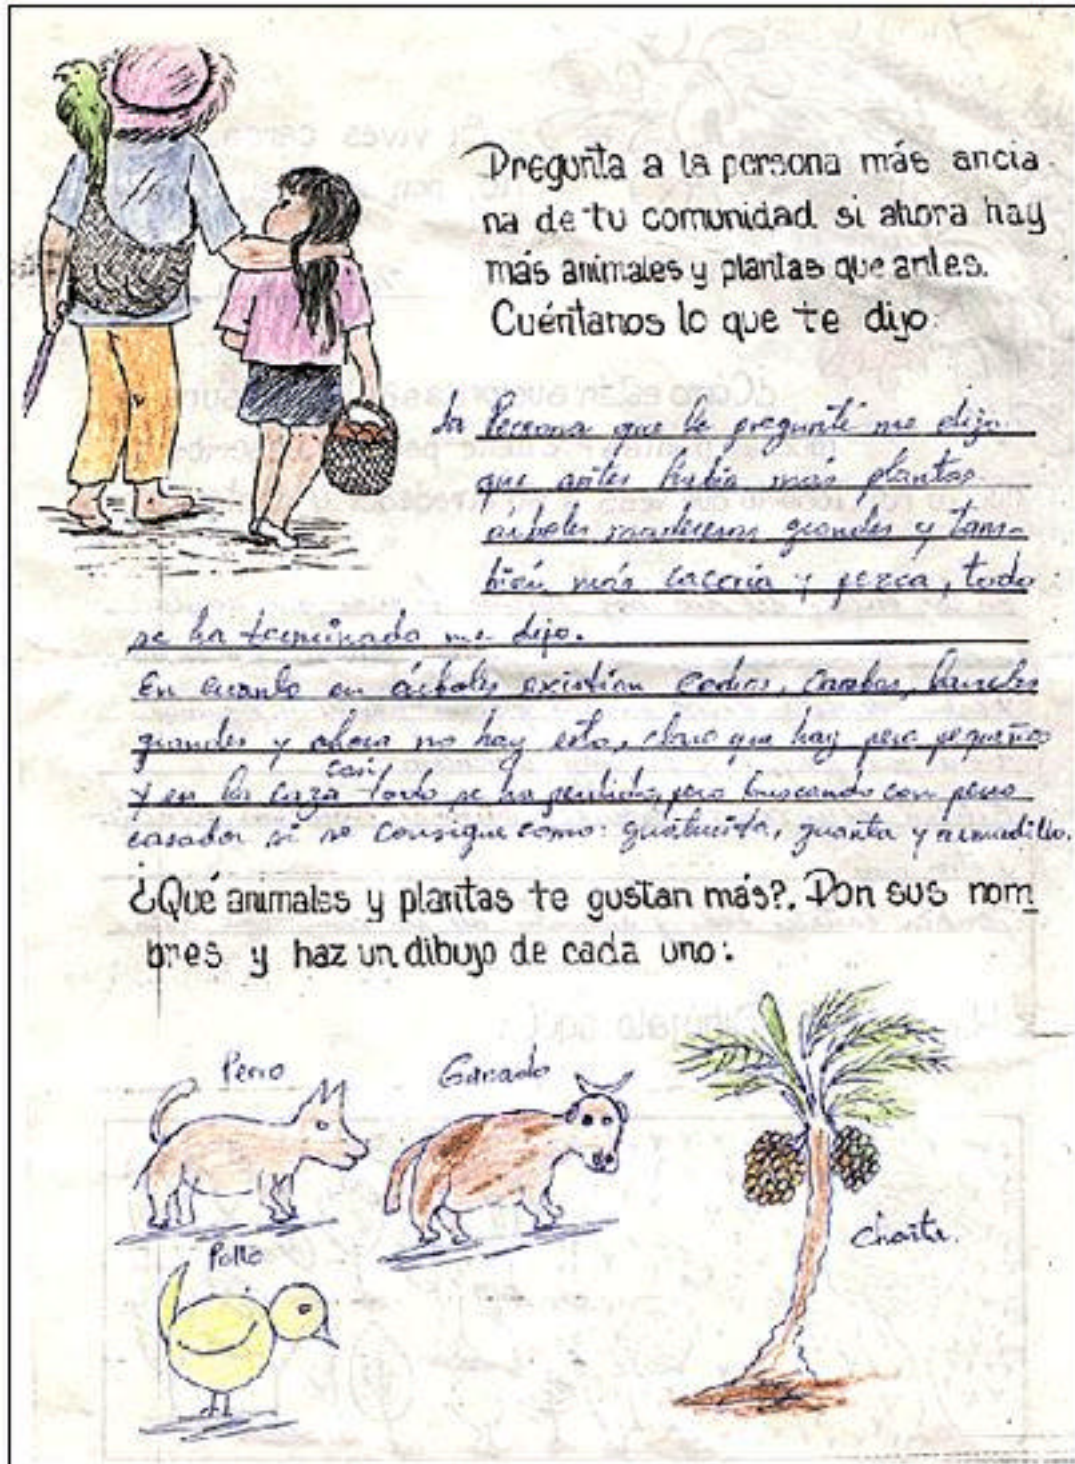 Pregunta a la persona más ancia-
na de tu comunidad si ahora hay
más animales y plantas que antes.
Cuéntanos lo que te dijo:
La Persona que le pregunté me dijo
que antes habia más plantas
árboles madereros grandes y tam-
bién más caceria y pezca, todo
se ha terminado me dijo.
En cuanto en árboles existian cedros,
grandes y ahora no hay esto, claro que hay pero pequeños
casi
y en la caza todo se ha perdido, pero buscando con perro
casador si se consigue como: guatucita, guanta y armadillo.
¿Qué animales y plantas te gustan más?. Pon sus nom
bres y haz un dibujo de cada uno:
Perro
Ganado
Pollo